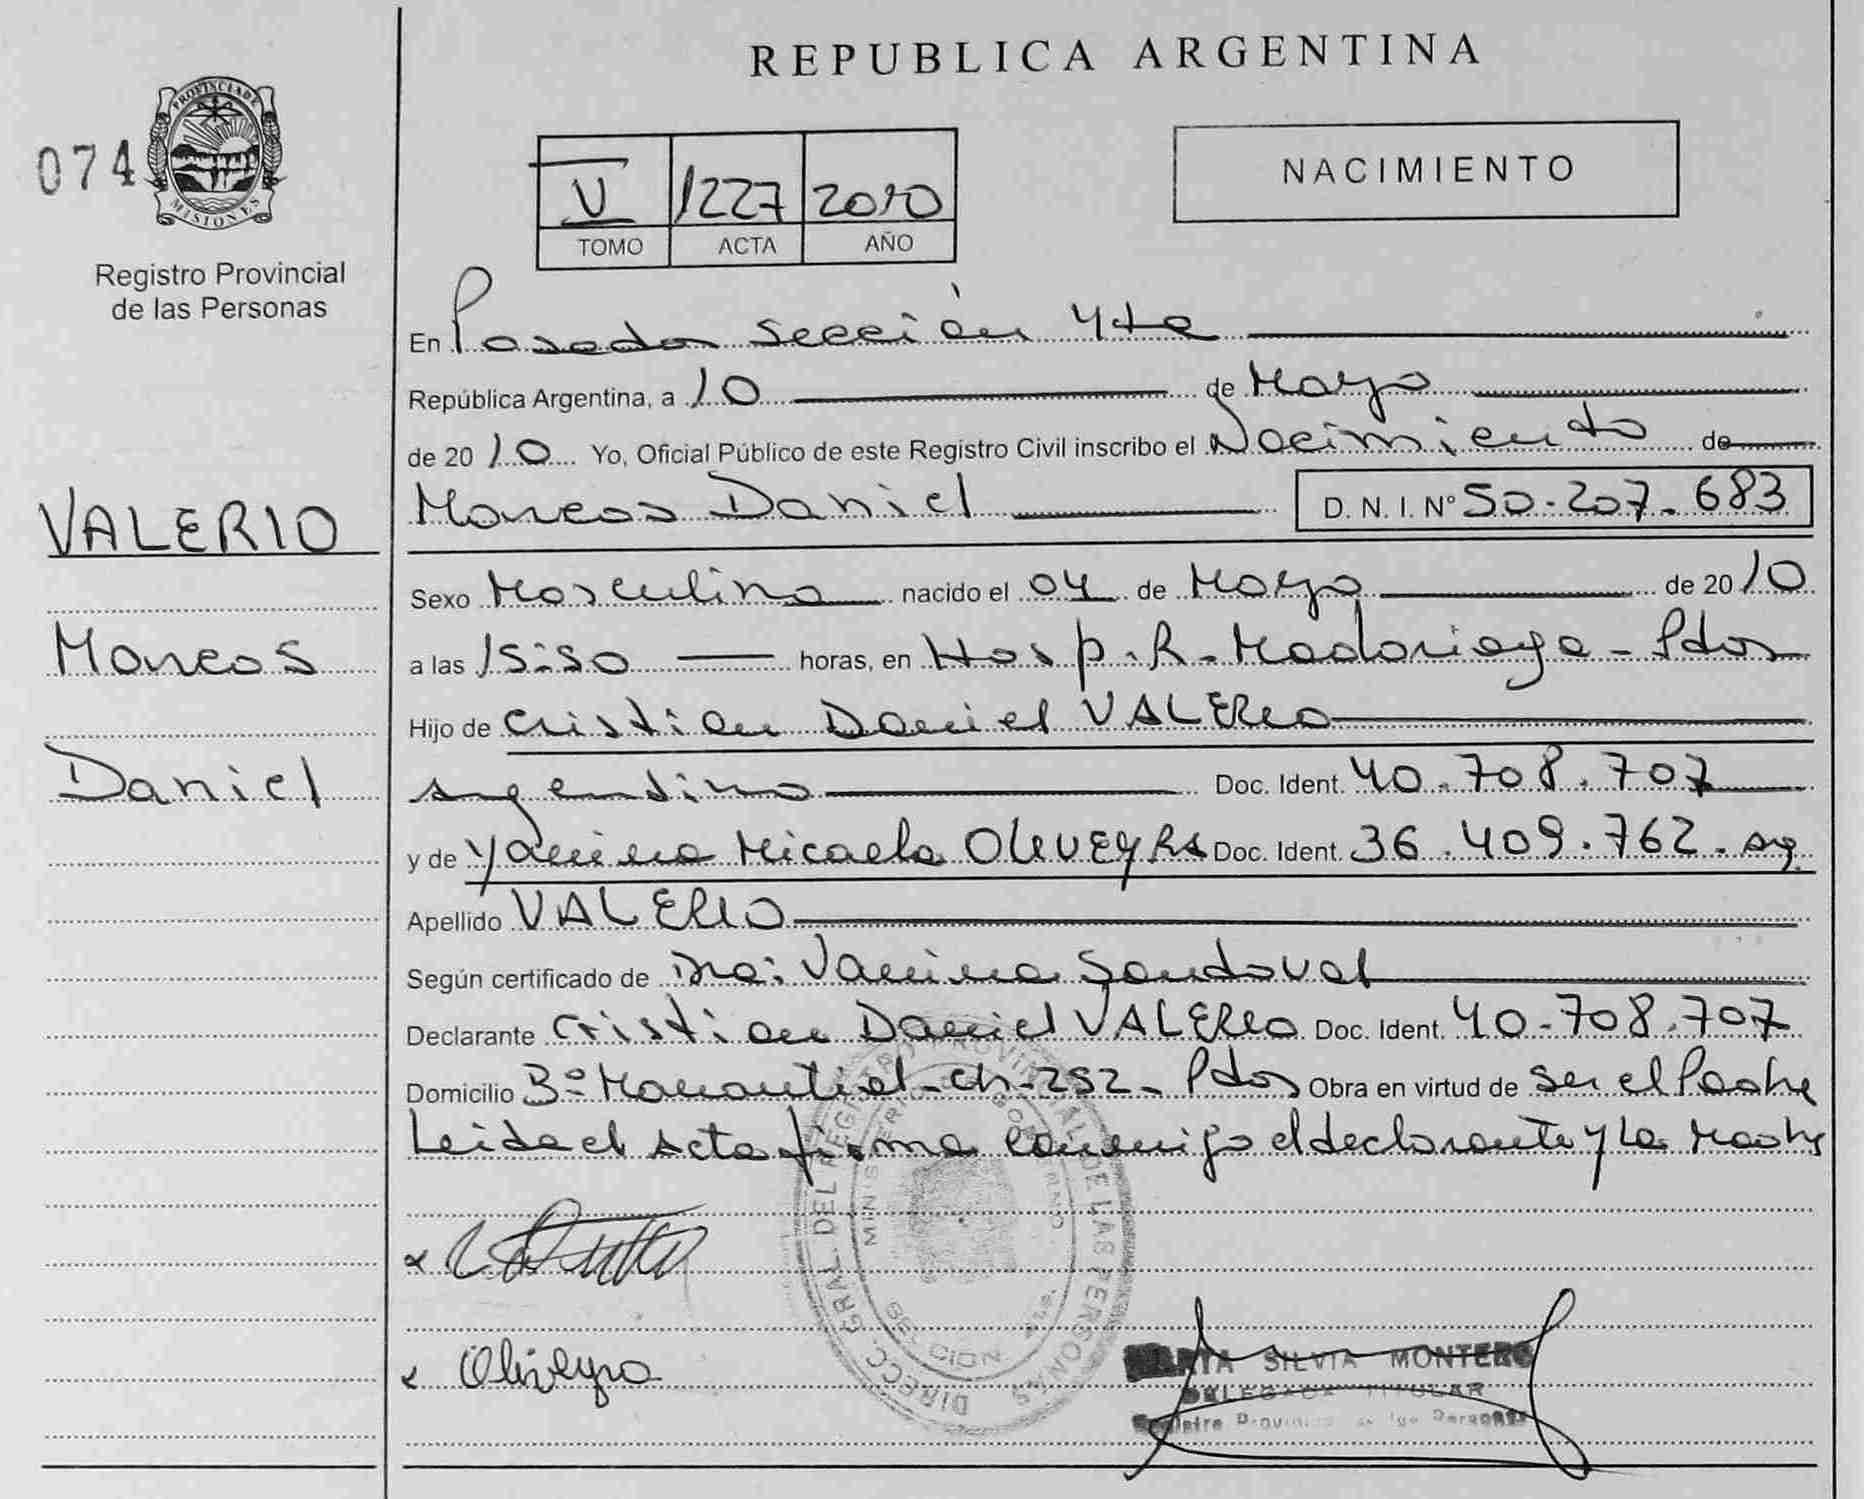 REPUBLICA ARGENTINA
PROVINCIA DE
MISIONES
074
Registro Provincial
de las Personas
V 1227 2010
TOMO ACTA AÑO
NACIMIENTO
En Posadas sección 4ta
República Argentina, a 10 de Mayo
de 2010 Yo, Oficial Público de este Registro Civil inscribo el Nacimiento de
Marcos Daniel D. N. I. Nº 50-207.683
VALERIO
Marcos
Daniel
Sexo Masculino nacido el 04 de Mayo de 2010
a las 15:50 horas, en Hosp. R. Madariaga - Pdas
Hijo de Cristian Daniel VALERIO
argentino Doc. Ident. 40.708.707
y de Yamina Micaela OLIVEYRA Doc. Ident. 36.409.762. arg.
Apellido VALERIO
Según certificado de Dra: Vanina Sandoval
Declarante Cristian Daniel VALERIO Doc. Ident. 40-708.707
Domicilio Bº Manantial - Ch-252 - Pdas Obra en virtud de ser el Padre
Leida el acta firma conmigo el declarante y La Madre
DIRECC. GRAL. DEL REGISTRO PROVINCIAL DE LAS PERSONAS
MINISTERIO GOBIERNO
Oliveyra
SILVIA MONTERO
DELEGADA TITULAR
Registro Provincial de las Personas